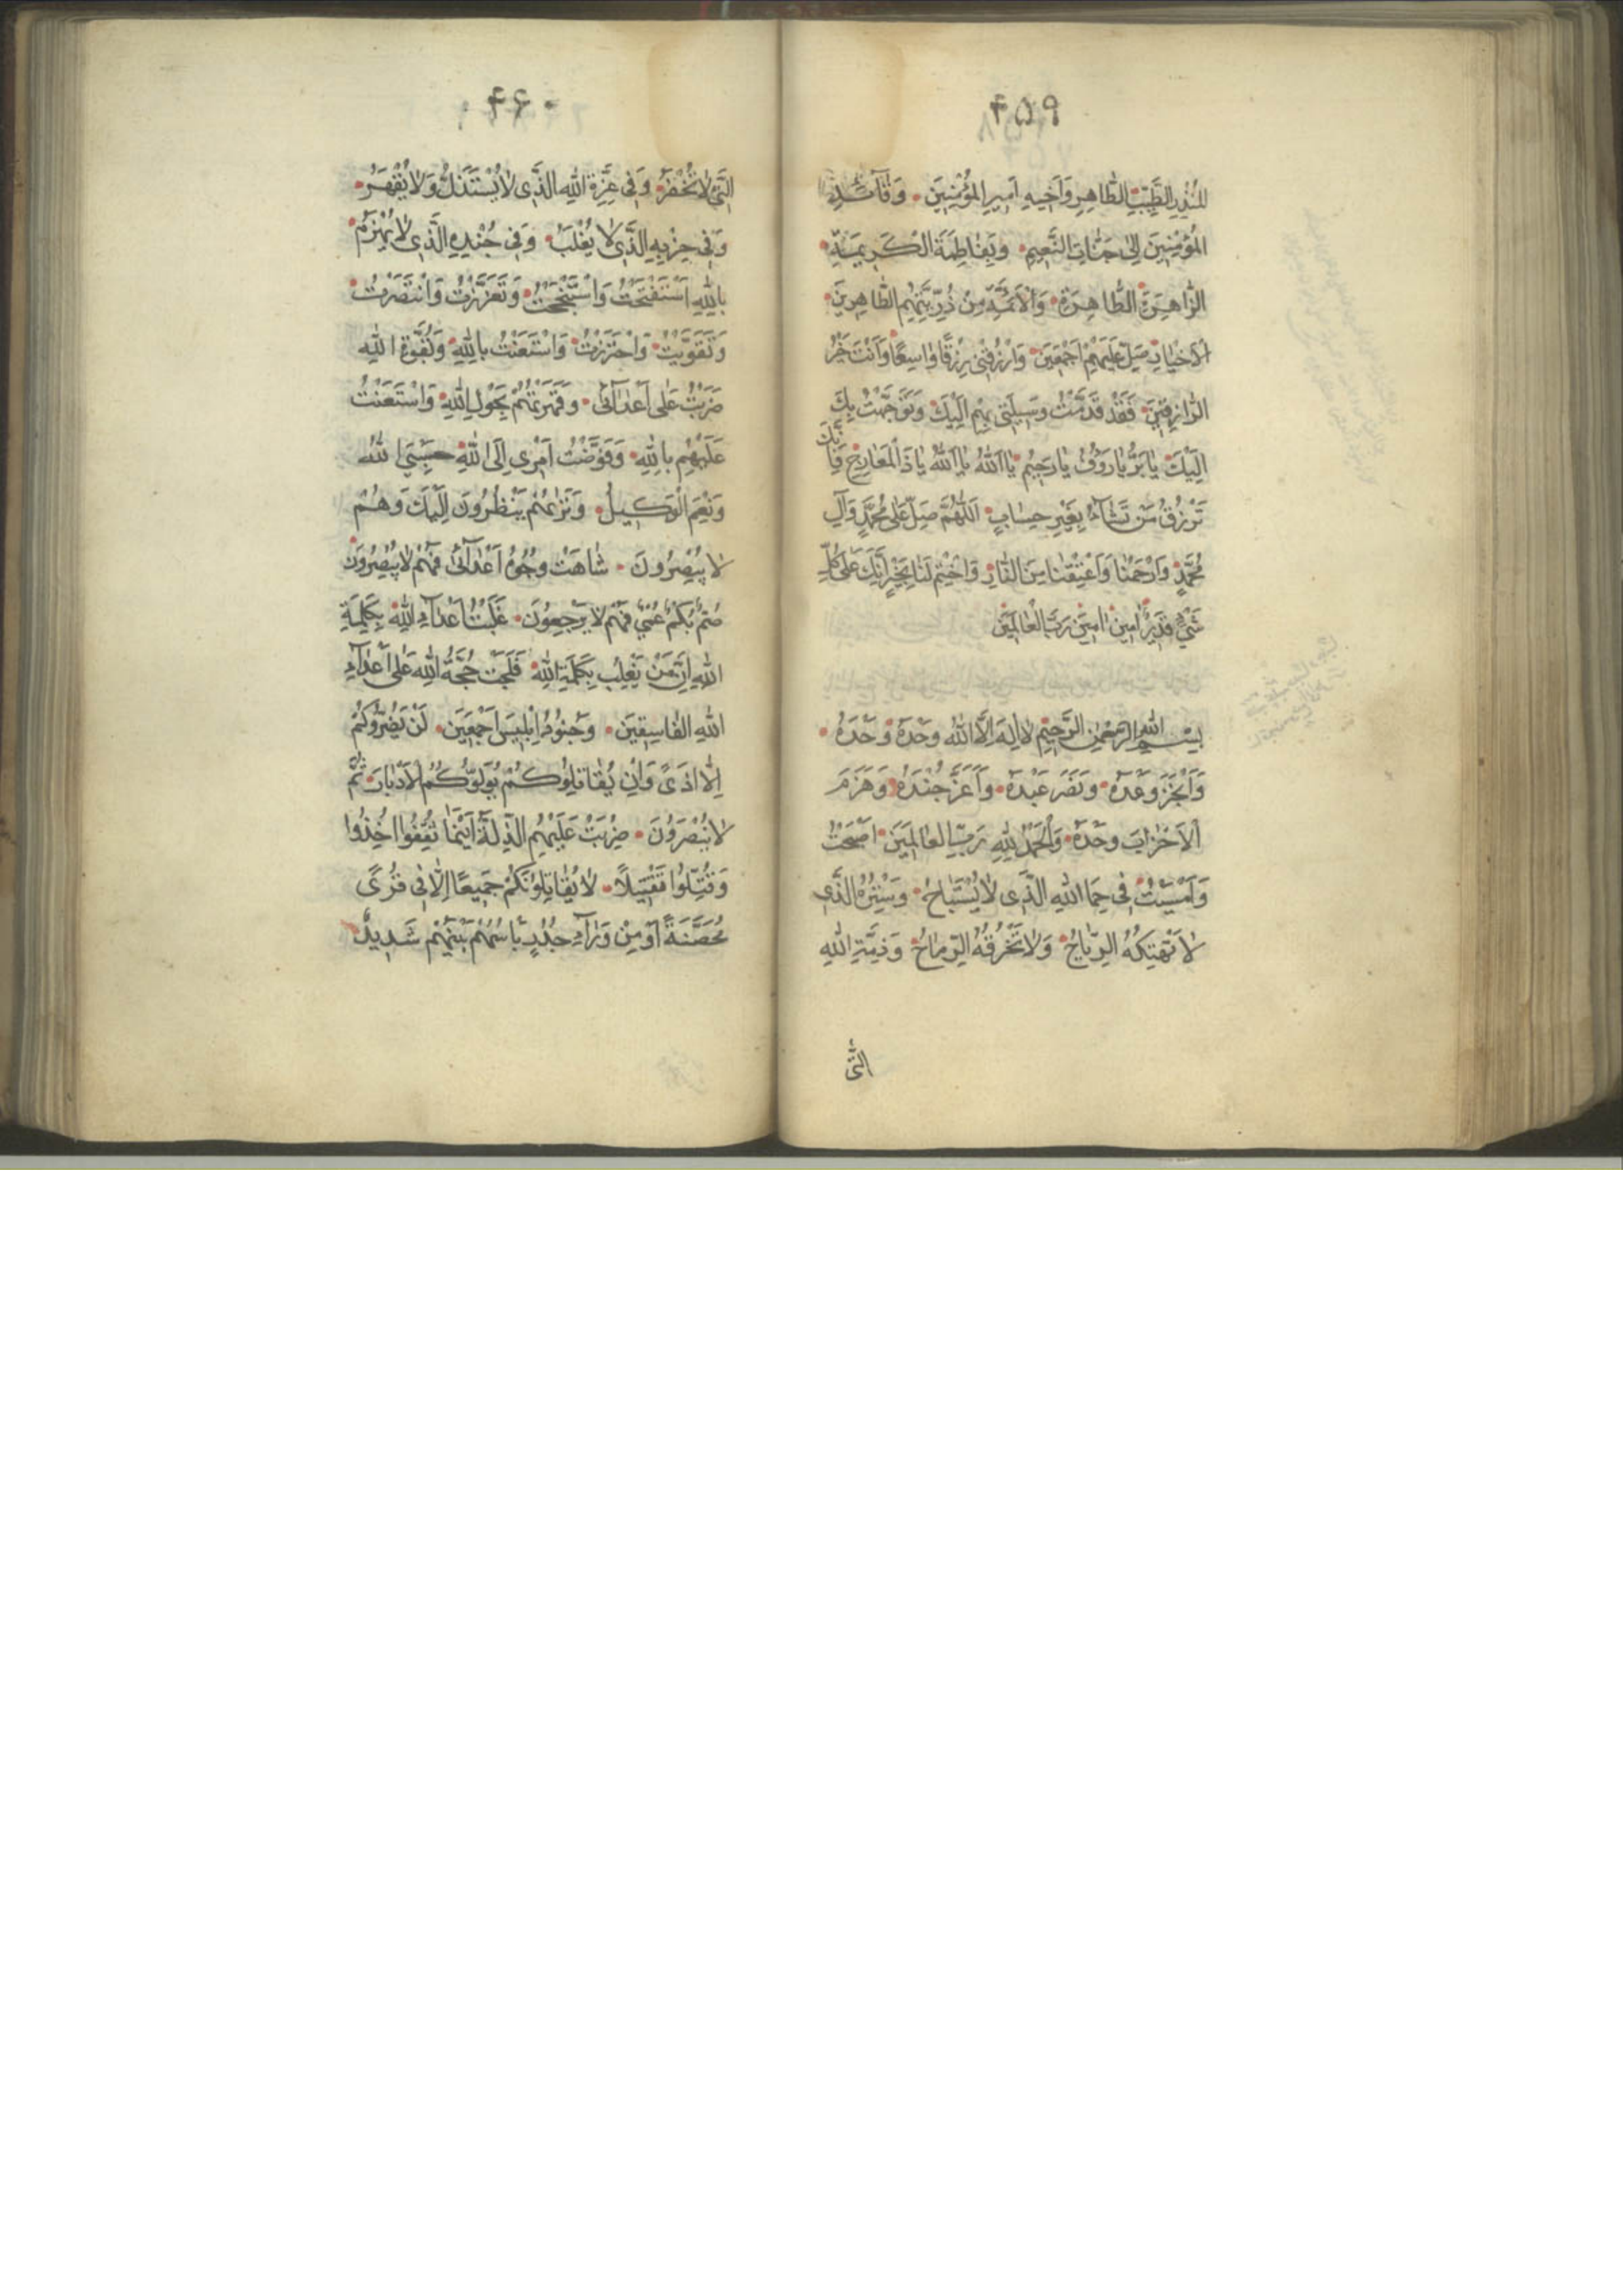 ۴۵۹
المُنْذِرِ الطَّيِّبِ الطَّاهِرِ وَاَخِيهِ اَمِيرِ المُؤْمِنِينَ وَقَآئِدِ
المُؤْمِنِينَ اِلىٰ جَنَّاتِ النَّعِيمِ وَبِفَاطِمَةَ الكَرِيمَةِ
الزَّاهِرَةِ الطَّاهِرَةِ وَالْاَئِمَّةِ مِنْ ذُرِّيَّتِهِمِ الطَّاهِرِينَ
الاَخْيَارِ صَلِّ عَلَيْهِمْ اَجْمَعِينَ وَارْزُقْنِى رِزْقًا وَاسِعًا وَاَنْتَ خَيْرُ
الرَّازِقِينَ فَقَدْ قَدَّمْتُ وَسِيلَتِى بِهِمْ اِلَيْكَ وَتَوَجَّهْتُ بِكَ
اِلَيْكَ يَا بَرُّ يَا رَؤُفُ يَا رَحِيمُ يَا اَللّٰهُ يَا اَللّٰهُ يَا ذَا المَعَارِجِ فَاِنَّكَ
تَرْزُقُ مَنْ تَشَآءُ بِغَيْرِ حِسَابٍ اَللّٰهُمَّ صَلِّ عَلىٰ مُحَمَّدٍ وَآلِ
مُحَمَّدٍ وَارْحَمْنَا وَاَعْتِقْنَا مِنَ النَّارِ وَاخْتِمْ لَنَا بِخَيْرٍ اِنَّكَ عَلىٰ كُلِّ
شَىْءٍ قَدِيرٌ اٰمِينَ اٰمِينَ رَبَّ الْعَالَمِينَ
بِسْمِ اللّٰهِ الرَّحْمٰنِ الرَّحِيمِ لَا اِلٰهَ اِلَّا اللّٰهُ وَحْدَهُ وَحْدَهُ
وَاَنْجَزَ وَعْدَهُ وَنَصَرَ عَبْدَهُ وَاَعَزَّ جُنْدَهُ وَهَزَمَ
الاَحْزَابَ وَحْدَهُ وَالْحَمْدُ لِلّٰهِ رَبِّ العَالَمِينَ اَصْبَحْتُ
وَاَمْسَيْتُ فِى حِمَا اللّٰهِ الَّذِى لَا يُسْتَبَاحُ وَسِتْرِهِ الَّذِى
لَا تَهْتِكُهُ الرِّيَاحُ وَلَا تَخْرُقُهُ الرِّمَاحُ وَذِمَّةِ اللّٰهِ
الَّتِى
۴۶۰
الَّتِى لَا تُخْفَرُ وَفِى عِزَّةِ اللّٰهِ الَّذِى لَا يُسْتَذَلُّ وَلَا يُقْهَرُ
وَفِى حِزْبِهِ الَّذِى لَا يُغْلَبُ وَفِى جُنْدِهِ الَّذِى لَا يُهْزَمُ
بِاللّٰهِ اسْتَفْتَحْتُ وَاسْتَنْجَحْتُ وَتَعَزَّزْتُ وَانْتَصَرْتُ
وَتَقَوَّيْتُ وَاحْتَرَزْتُ وَاسْتَعَنْتُ بِاللّٰهِ وَبِقُوَّةِ اللّٰهِ
ضَرَبْتُ عَلىٰ اَعْدَآئِى وَقَهَرْتُهُمْ بِحَوْلِ اللّٰهِ وَاسْتَعَنْتُ
عَلَيْهِمْ بِاللّٰهِ وَفَوَّضْتُ اَمْرِى اِلَى اللّٰهِ حَسْبِىَ اللّٰهُ
وَنِعْمَ الْوَكِيلُ وَتَرٰىهُمْ يَنْظُرُونَ اِلَيْكَ وَهُمْ
لَا يُبْصِرُونَ شَاهَتْ وُجُوهُ اَعْدَآئِى فَهُمْ لَا يُبْصِرُونَ
صُمٌّ بُكْمٌ عُمْىٌ فَهُمْ لَا يَرْجِعُونَ غَلَبْتُ اَعْدَآءَ اللّٰهِ بِكَلِمَةِ
اللّٰهِ اَيْنَ مَنْ يَغْلِبُ بِكَلِمَةِ اللّٰهِ فَلَجَتْ حُجَّةُ اللّٰهِ عَلىٰ اَعْدَآءِ
اللّٰهِ الفَاسِقِينَ وَجُنُودِ اِبْلِيسَ اَجْمَعِينَ لَنْ يَضُرُّوكُمْ
اِلَّا اَذىً وَاِنْ يُقَاتِلُوكُمْ يُوَلُّوكُمُ الْاَدْبَارَ ثُمَّ
لَا يُنْصَرُونَ ضُرِبَتْ عَلَيْهِمُ الذِّلَّةُ اَيْنَمَا ثُقِفُوا اُخِذُوا
وَقُتِّلُوا تَقْتِيلًا لَا يُقَاتِلُونَكُمْ جَمِيعًا اِلَّا فِى قُرًى
مُحَصَّنَةٍ اَوْ مِنْ وَرَآءِ جُدُرٍ بَاْسُهُمْ بَيْنَهُمْ شَدِيدٌ